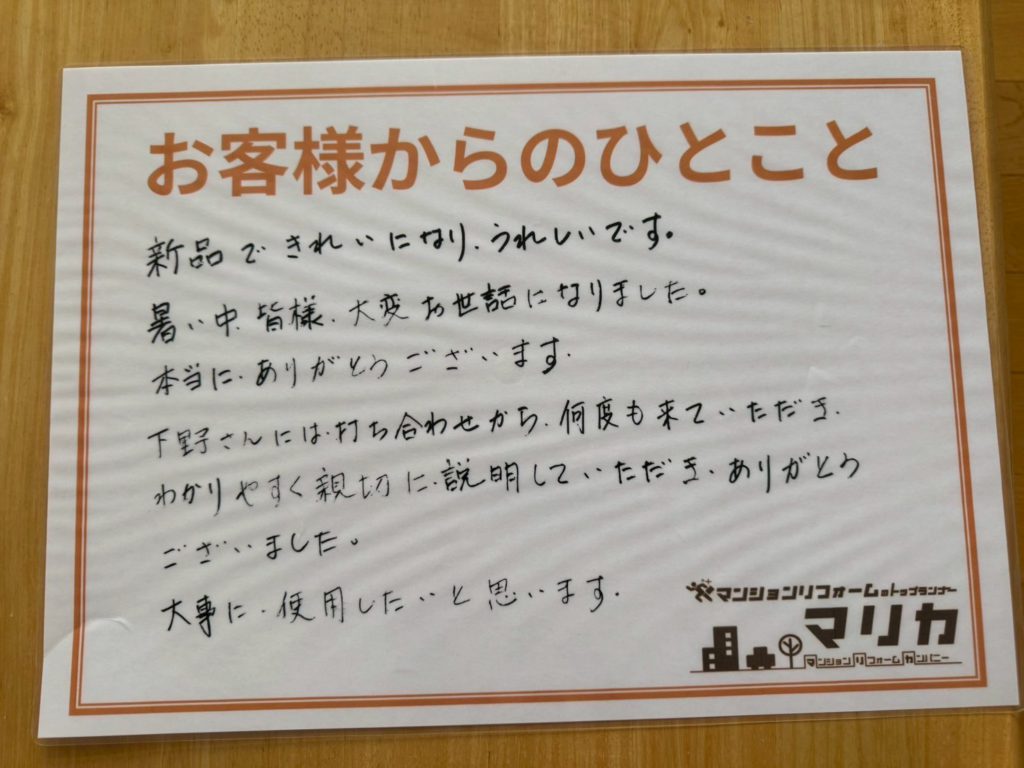 お客様からのひとこと
新品できれいになり、うれしいです。
暑い中、皆様、大変お世話になりました。
本当に、ありがとうございます。
下野さんには、打ち合わせから、何度も来ていただき、
わかりやすく親切に、説明していただき、ありがとう
ございました。
大事に、使用したいと思います。
マンションリフォームのトップランナー
マリカ
マンションリフォームカンパニー